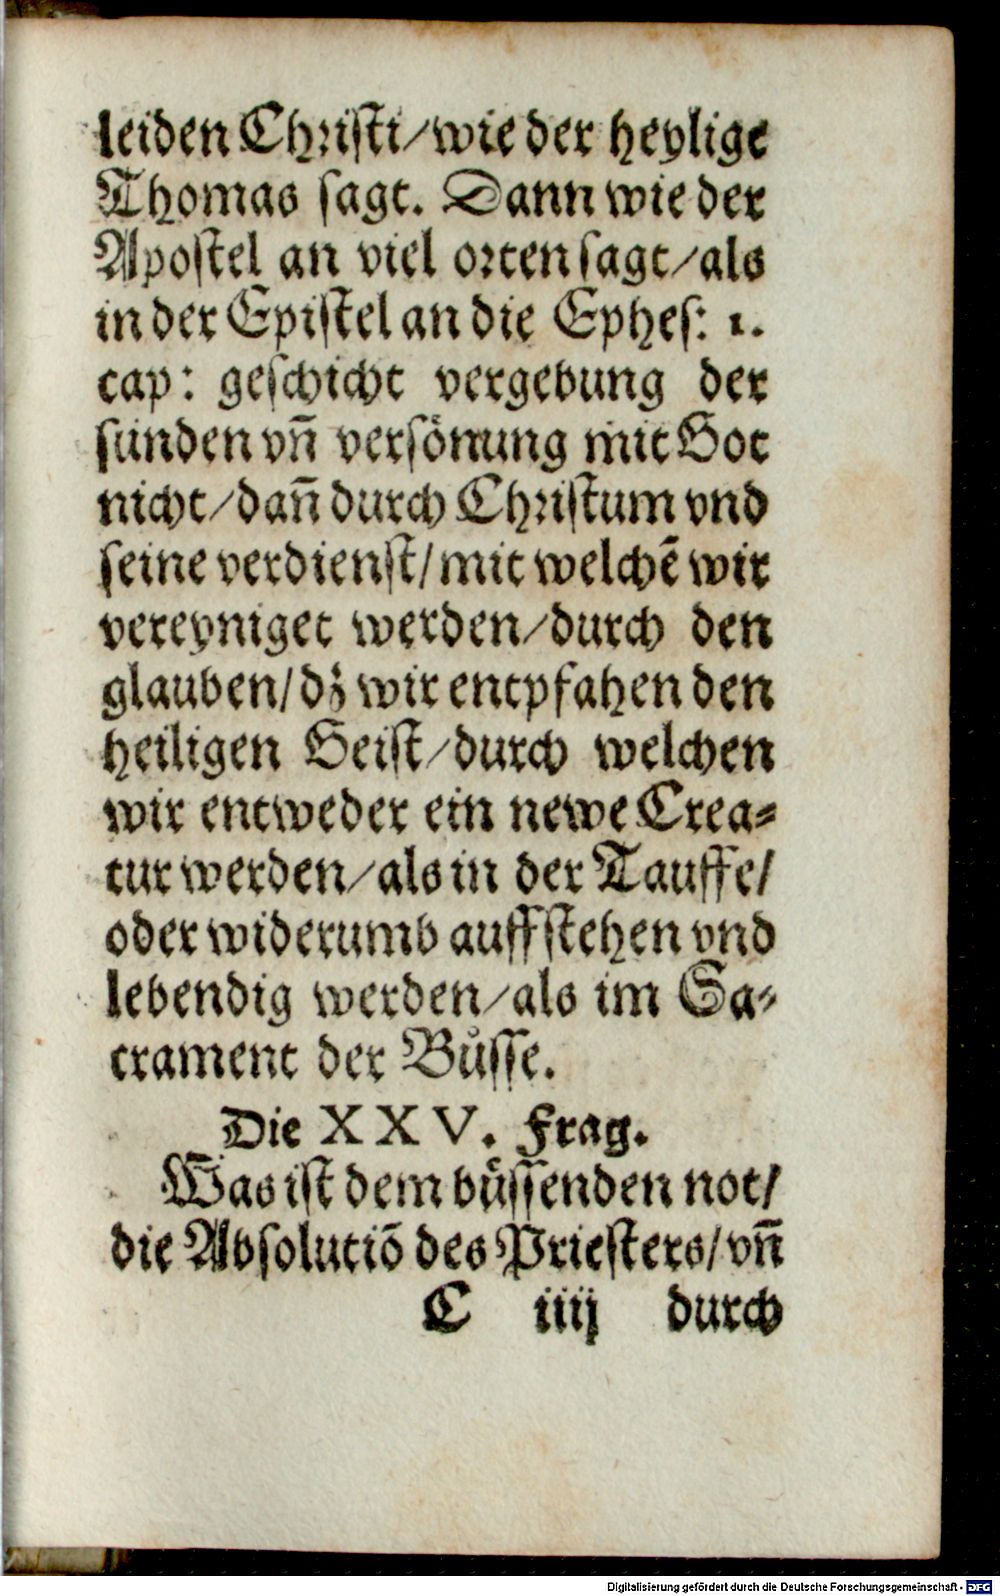 leiden Christi/wie der heylige
Thomas sagt. Dann wie der
Apostel an viel orten sagt/als
in der Epistel an die Ephes: 1.
cap: geschicht vergebung der
sünden vñ versönung mit Got
nicht/dañ durch Christum vnd
seine verdienst/mit welchẽ wir
vereyniget werden/durch den
glauben/dz wir entpfahen den
heiligen Geist/durch welchen
wir entweder ein newe Crea⸗
tur werden/als in der Tauffe/
oder widerumb auffstehen vnd
lebendig werden/als im Sa⸗
crament der Bůsse.
Die XXV. Frag.
Was ist dem bůssenden not/
die Absolutiõ des Priesters/vñ
C iiij durch
Digitalisierung gefördert durch die Deutsche Forschungsgemeinschaft - DFG